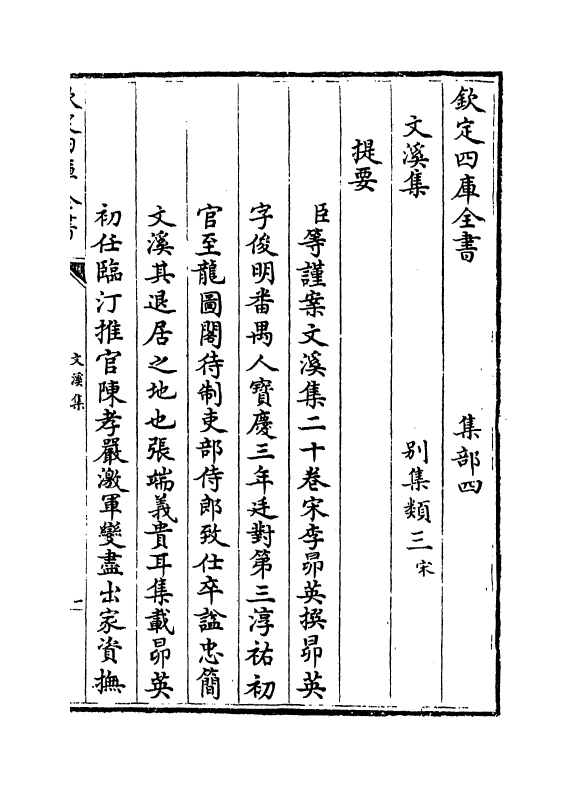 欽定四庫全書　集部四
文溪集　別集類三宋
提要
臣等謹案文溪集二十卷宋李昴英撰昴英
字俊明番禺人寶慶三年廷對第三淳祐初
官至龍圖閣待制吏部侍郎致仕卒諡忠簡
文溪其退居之地也張端義貴耳集載昴英
初任臨汀推官陳孝嚴激軍變盡出家資撫
欽定四庫全書　文溪集